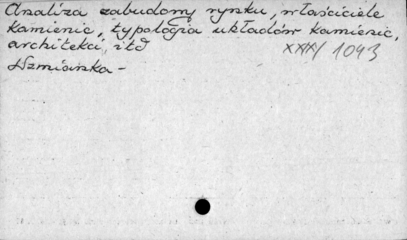 Analiza zabudowy rynku, właściciele
kamienic, typologia układów kamienic,
architekci, itd
XXX/1043